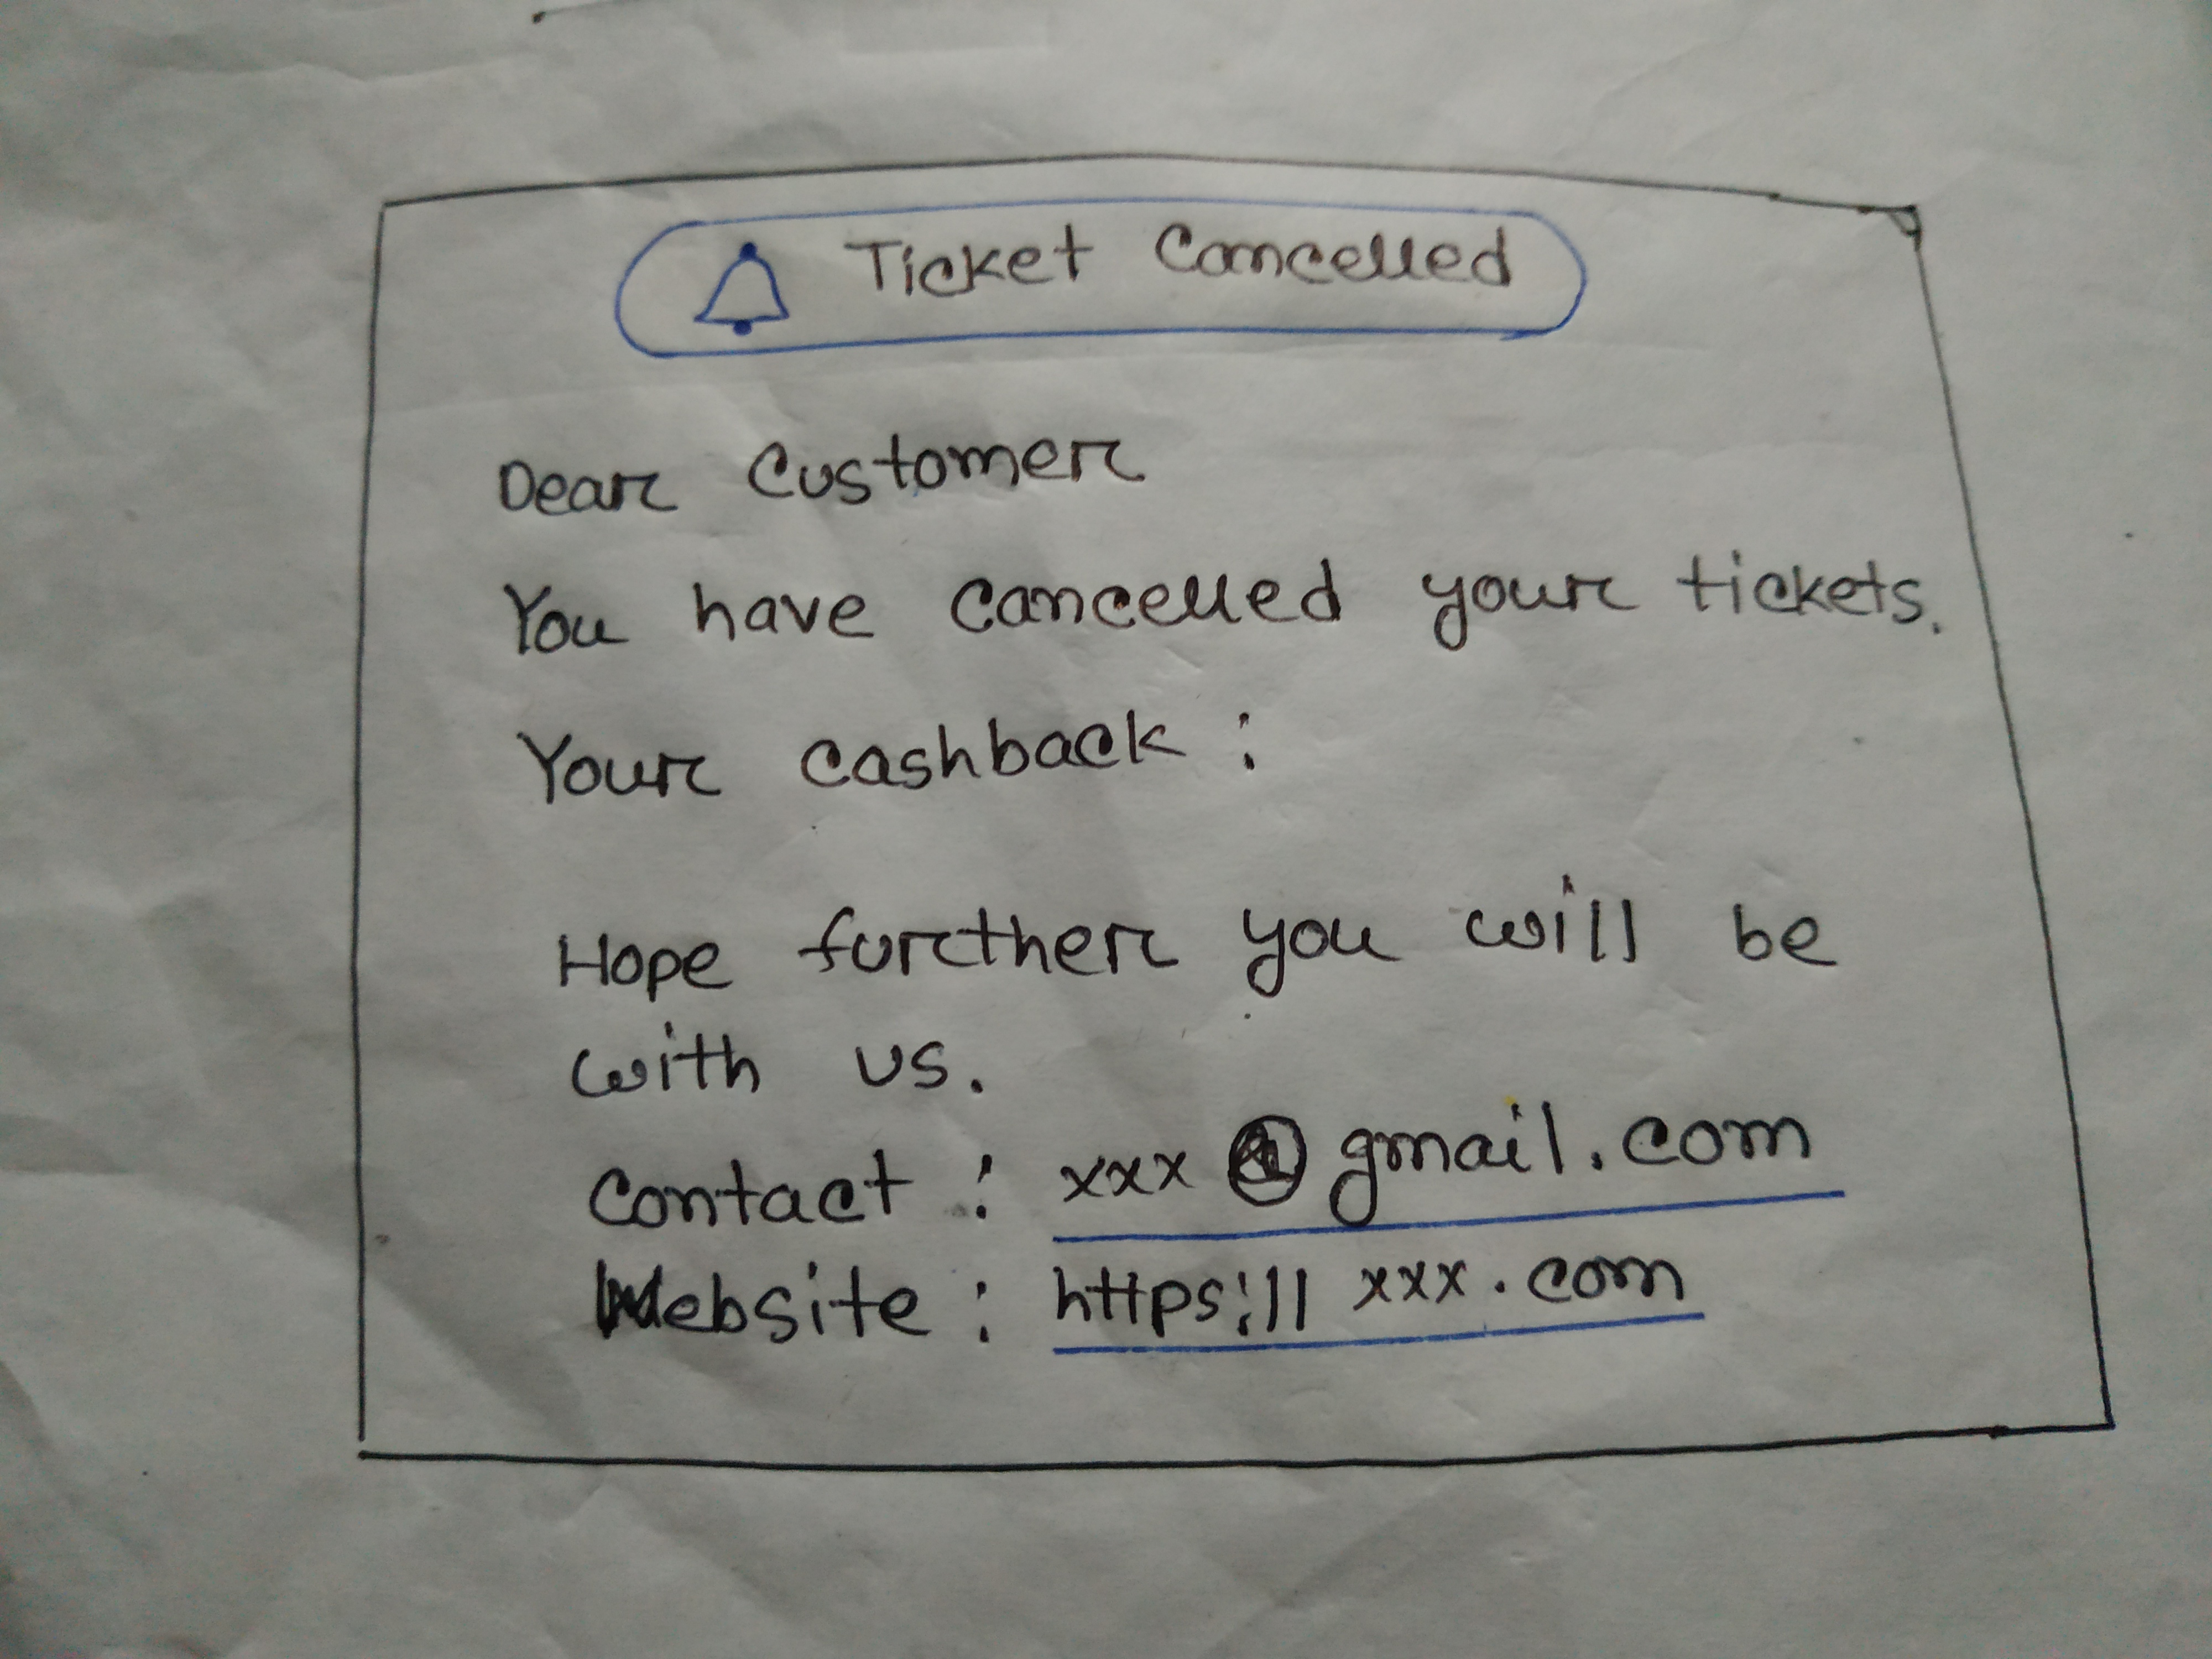 Ticket Cancelled
Dear Customer
You have cancelled your tickets.
Your cashback :
Hope further you will be
with us.
Contact : xxx @ gmail.com
Website : https:// xxx.com